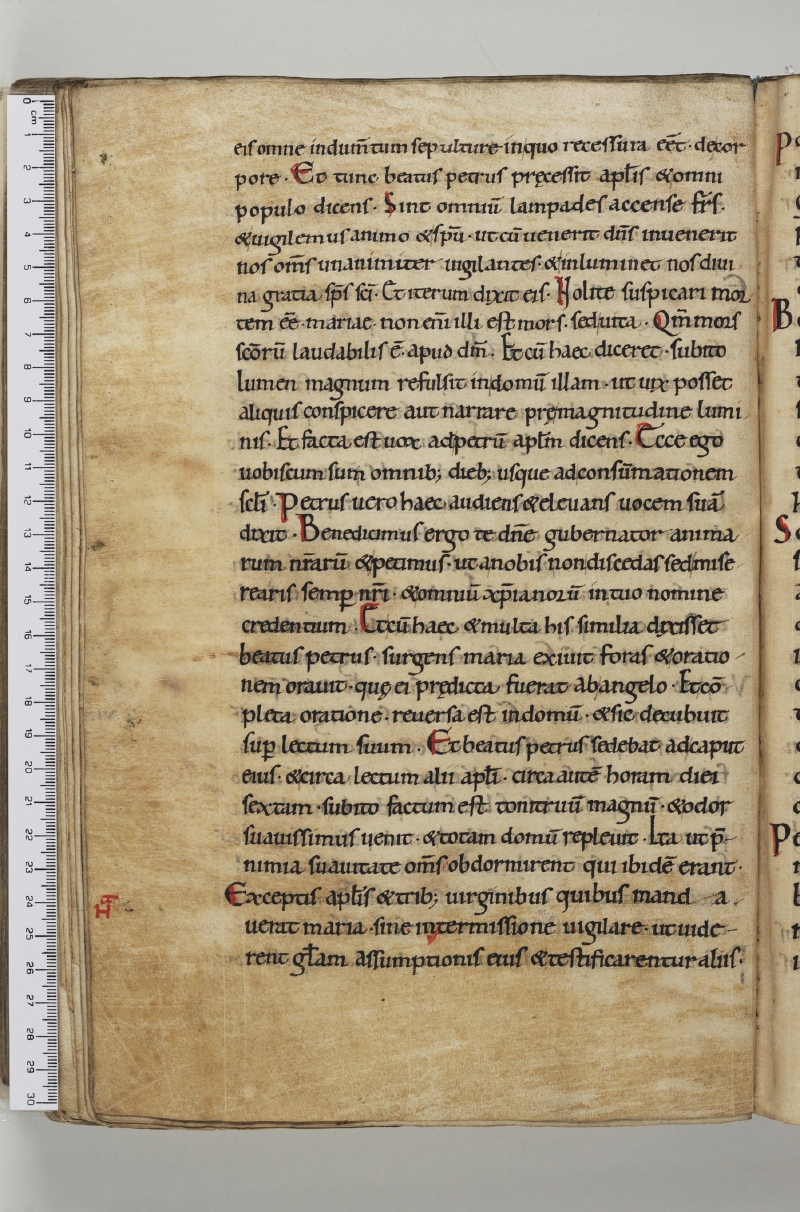 eis omne indum̅tum sepulture inquo recessura eēt decor
pore · Et tunc beatus petrus pręcessit apl̅is & omni
populo dicens · Sint omniu̅ lampades accense fr̅s.
& uigilemus animo & sp̅u · ut cu̅ uenerit dn̅s inuenerit
nos om̅s unanimiter uigilantes · & inluminet nos diui
na gratia sp̅s sc̅i · Et iterum dixit eis · Nolite suspicari mor
tem ee̅ mariae · non eni̅ illi est mors · sed uita · Qm̅ mors
sco̅ru̅ laudabilis e̅ apud dm̅ · Et cu̅ haec diceret · subito
lumen magnum refulsit in domu̅ illam · ut uix posset
aliquis conspicere aut narrare prę magnitudine lumi
nis · Et facta est uox ad petru̅ apl̅m dicens · Ecce ego
uobiscum sum omnib; dieb; usque ad consu̅mationem
scl̅i · Petrus uero haec audiens & eleuans uocem sua̅
dixit · Benedicimus ergo te dn̅e gubernator anima
rum nr̅aru̅ & petimus · ut a nobis non discedas sed mise
rearis semp̲ nr̅i · & omniu̅ xp̅ianoru̅ in tuo nomine
credentium · Et cu̅ haec & multa his similia dixisset
beatus petrus · surgens maria exiuit foras & oratio
nem orauit · quę ei prędicta fuerat ab angelo · Et co̅
pleta oratione · reuersa est in domu̅ · & sic decubuit
sup̲ lectum suum · Et beatus petrus sedebat ad caput
eius · & circa lectum alii apl̅i · circa aute̅ horam diei
sextam · subito factum est tonitruu̅ magnu̅ · & odor
suauissimus uenit · & totam domu̅ repleuit · Ita ut p̅
nimia suauitate om̅s obdormirent qui ibide̅ erant ·
Exceptis apl̅is & trib; uirginibus quibus mand a
uerat maria · sine intermissione uigilare · ut uide
rent gl̅am assumptionis eius & testificarentur aliis ·